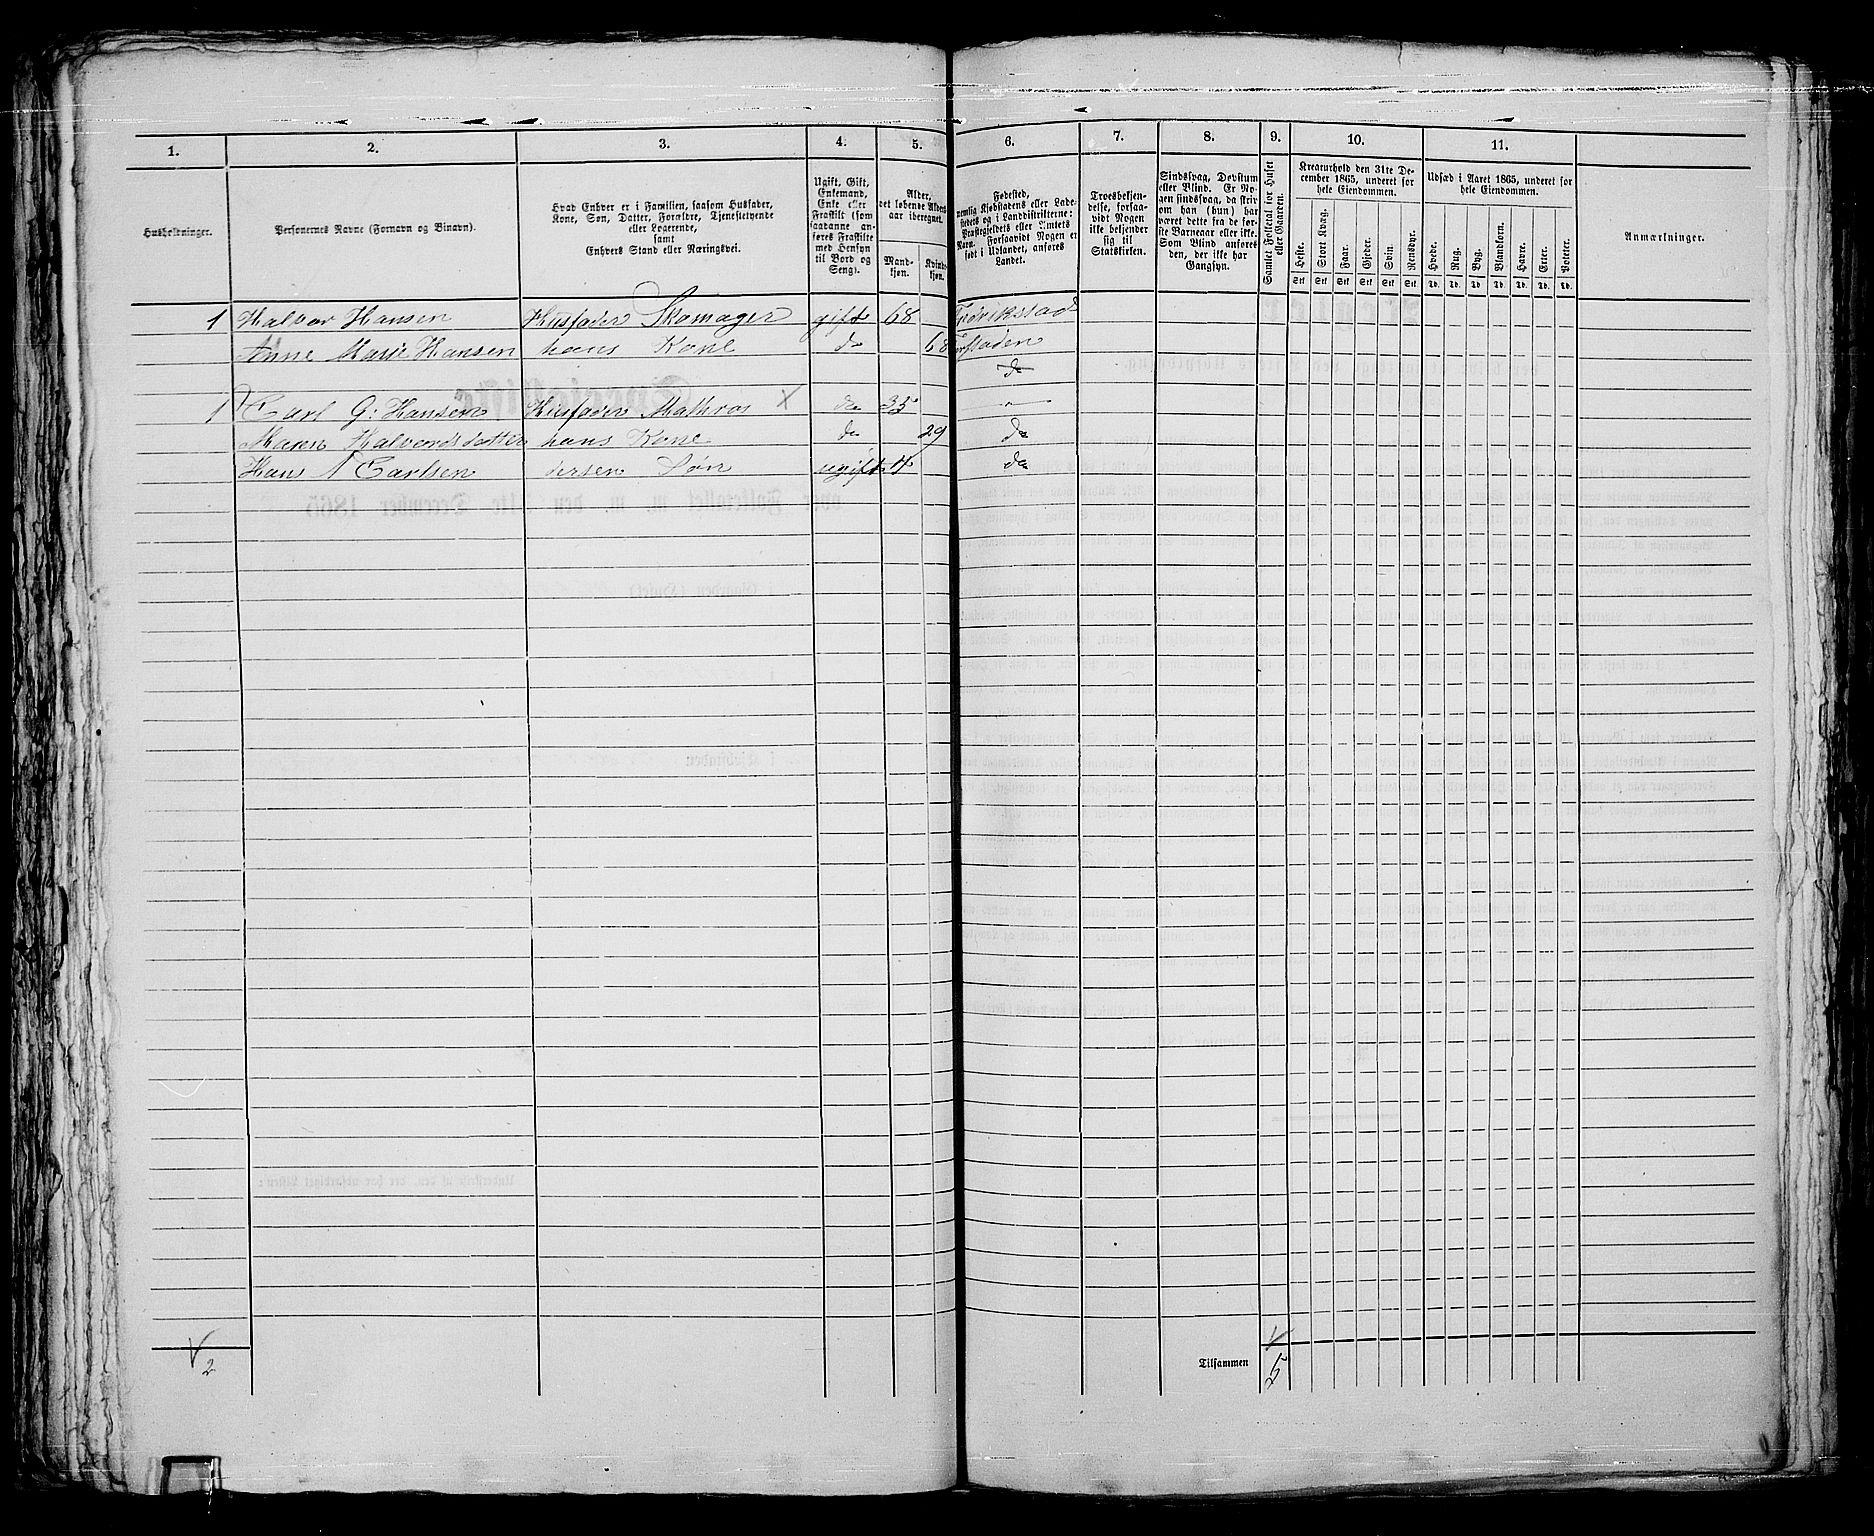 1. 2. 3. 4. 5. 6. 7. 8. 9. 10. 11.
Husholdninger.
Personernes Navne (Fornavn og Binavn).
Hvad Enhver er i Familien, saasom Husfader,
Kone, Søn, Datter, Forældre, Tjenestetyende
eller Logerende,
samt
Enhvers Stand eller Næringsvei.
Ugift, Gift,
Enkemand,
Enke eller
Fraskilt (som
saadanne an-
føres Fraskilte
med Hensyn
til Bord og
Seng).
Alder,
det løbende Alders-
aar iberegnet.
Mand-
kjøn.
Kvinde-
kjøn.
Fødested,
nemlig Kjøbstadens eller Lade-
stedets og i Landdistrikterne:
Præstegjeldets eller Amtets
Navn. Forsaavidt Nogen er
født i Udlandet, anføres
Landet.
Troesbekjen-
delse, forsaa-
vidt Nogen
ikke bekjender
sig til
Statskirken.
Sindssvag, Døvstum
eller Blind. Er No-
gen sindssvag, da skriv
om han (hun) har
været dette fra de før-
ste Barneaar eller ikke.
Som Blind anføres
den, der ikke har
Gangsyn.
Samlet Folketal for Huset
eller Gaarden.
Kreaturhold den 31te De-
cember 1865, underet for
hele Eiendommen.
Heste. Stort Kvæg. Faar. Gjeder. Svin. Rensdyr.
Stk Stk Stk Stk Stk Stk
Udsæd i Aaret 1865, underet for
hele Eiendommen.
Hvede. Rug. Byg. Blandkorn. Havre. Erter. Poteter.
Td. Td. Td. Td. Td. Td. Td.
Anmærkninger.
1 Halvor Hansen Husfader Skomager gift 68 Fredrikstad
Anne Marie Hansen hans Kone do 68 Forstaden
do
1 Carl G: Hansen Husfader Mathros X do 35 "
Maren Halvordsdatter hans Kone do 29 do
Hans A Carlsen dersen Søn ugift 4 do
2
Tilsammen 5